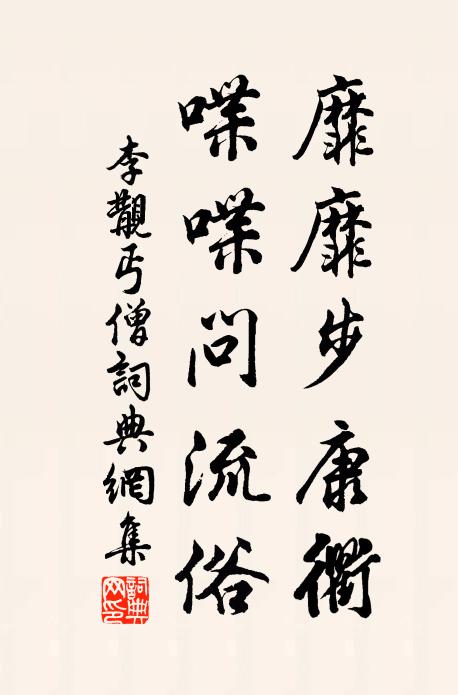 靡靡步康衢
喋喋問流俗
李觀丐僧詞典網集
詞典網印